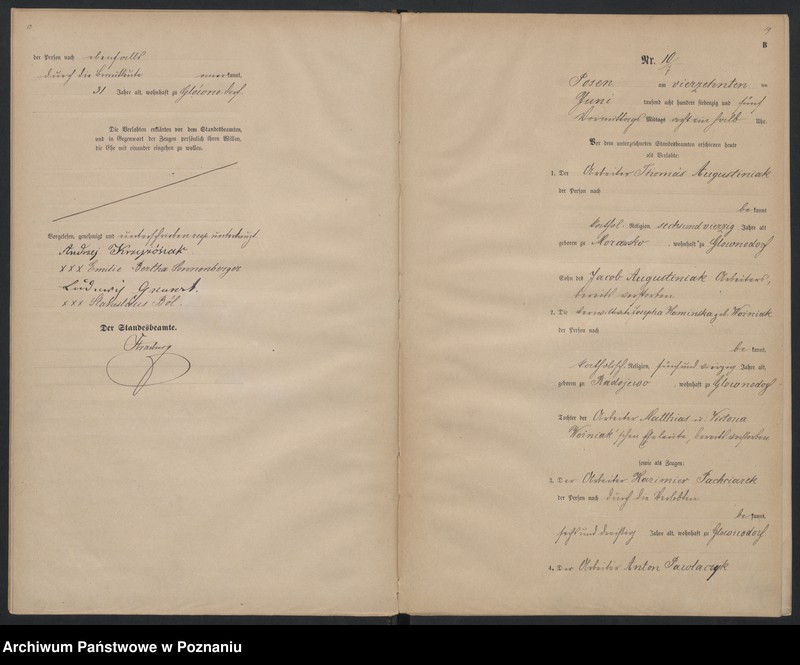 der Person nach ebenfalls
durch die Brautleute anerkannt,
31 Jahre alt, wohnhaft zu Glówno Dorf.
Die Verlobten erklärten vor dem Standesbeamten,
und in Gegenwart der Zeugen persönlich ihren Willen,
die Ehe mit einander eingehen zu wollen.
Vorgelesen, genehmigt und unterschrieben resp. unterkreuzt
Andrzej
xxx Emilie Bertha Sonnenberger
Ludwig
xxx Stanislaus
Der Standesbeamte.
B
Nr. 10
Posen am vierzehnten ten
Juni tausend acht hundert siebenzig und fünf
Vormittags Mittags acht ein halb Uhr.
Vor dem unterzeichneten Standesbeamten erschienen heute
als Verlobte:
1. Der Arbeiter Thomas Augustiniak
der Person nach
be kannt
kathol. Religion, sechsundvierzig Jahre alt
geboren zu Morasko, wohnhaft zu Glownodorf
Sohn des Jacob Augustiniak Arbeiters,
bereits verstorben
2. Die verwittwete Josepha Kaminska geb. Woiniak
der Person nach
be kannt,
katholisch. Religion, fünfund vierzig Jahre alt,
geboren zu Radojewo, wohnhaft zu Glownodorf
Tochter der Arbeiter Matthias u.
Woiniak'schen Eheleute, bereits verstorben
sowie als Zeugen:
3. Der Arbeiter Kazimier Pachciarek
der Person nach durch die Verlobten
be kannt,
sechs und dreißig Jahre alt, wohnhaft zu Glownodorf
4. Der Arbeiter Anton Pawlaczyk
Archiwum Państwowe w Poznaniu